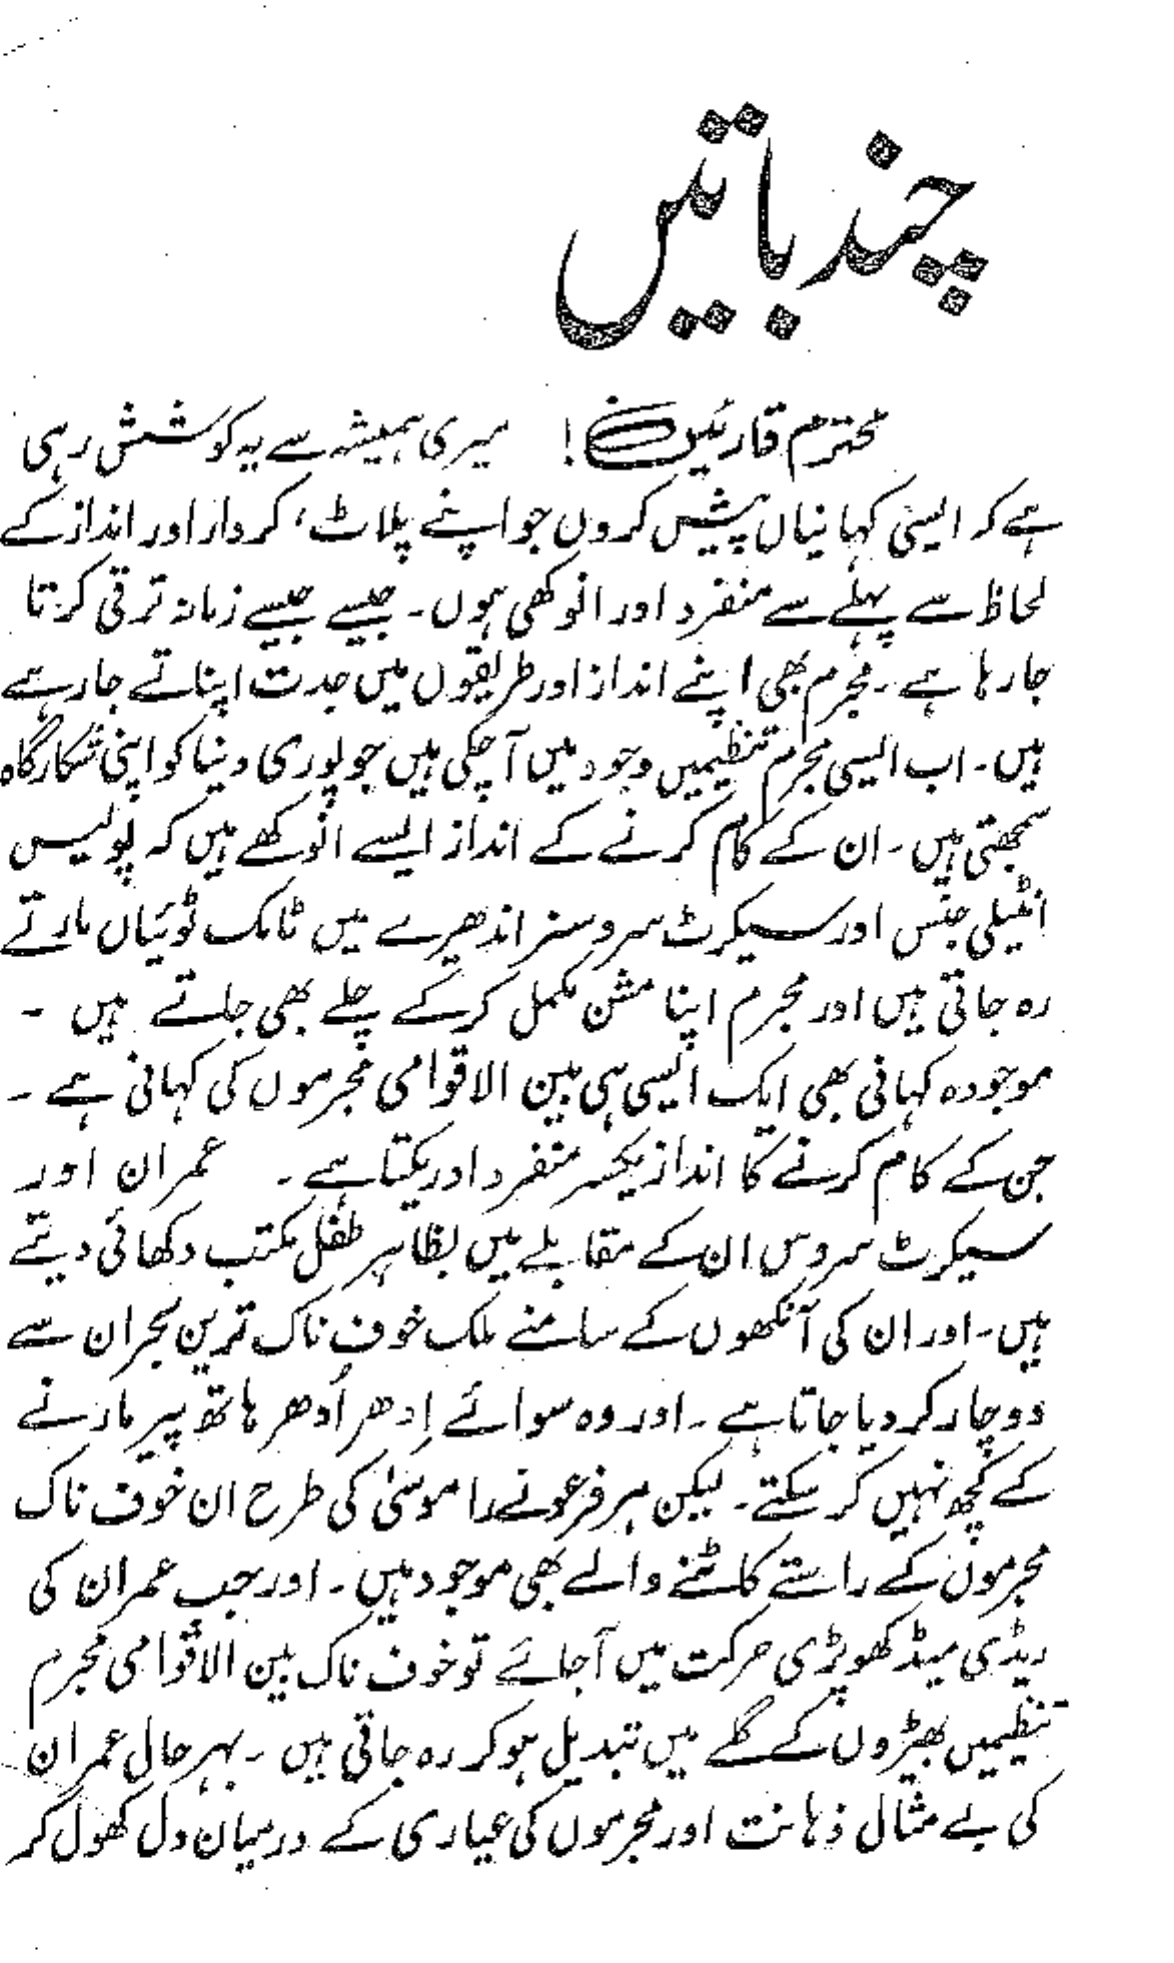 چند باتیں
محترم قارئین! میری ہمیشہ سے یہ کوشش رہی
ہے کہ ایسی کہانیاں پیش کروں جو اپنے پلاٹ، کردار اور انداز کے
لحاظ سے پہلے سے منفرد اور انوکھی ہوں۔ جیسے جیسے زمانہ ترقی کرتا
جا رہا ہے۔ مجرم بھی اپنے انداز اور طریقوں میں جدت اپناتے جا رہے
ہیں۔ اب ایسی مجرم تنظیمیں وجود میں آچکی ہیں جو پوری دنیا کو اپنی شکارگاہ
سمجھتی ہیں۔ ان کے کام کرنے کے انداز ایسے انوکھے ہیں کہ پولیس
انٹیلی جنس اور سیکرٹ سروسز اندھیرے میں ٹامک ٹوئیاں مارتے
رہ جاتی ہیں اور مجرم اپنا مشن مکمل کرکے چلے بھی جاتے ہیں ۔
موجودہ کہانی بھی ایک ایسی ہی بین الاقوامی مجرموں کی کہانی ہے ۔
جن کے کام کرنے کا انداز یکسر منفرد اور یکتا ہے ۔ عمران اور
سیکرٹ سروس ان کے مقابلے میں بظاہر طفل مکتب دکھائی دیتے
ہیں۔ اور ان کی آنکھوں کے سامنے ملک خوف ناک ترین بحران سے
دوچار کر دیا جاتا ہے ۔ اور وہ سوائے اِدھر اُدھر ہاتھ پیر مارنے
کے کچھ نہیں کر سکتے۔ لیکن ہر فرعونے را موسیٰ کی طرح ان خوف ناک
مجرموں کے راستے کاٹنے والے بھی موجود ہیں۔ اور جب عمران کی
ریڈی میڈ کھوپڑی حرکت میں آجائے تو خوف ناک بین الاقوامی مجرم
تنظیمیں بھیڑوں کے گلے میں تبدیل ہو کر رہ جاتی ہیں ۔ بہرحال عمران
کی بے مثال ذہانت اور مجرموں کی عیاری کے درمیان دل کھول کر